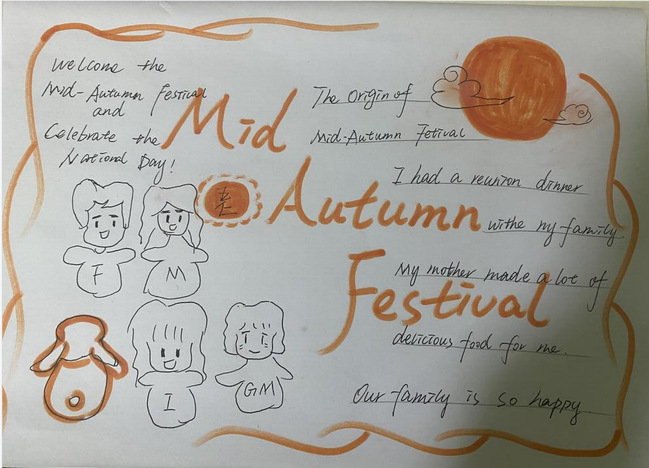 Welcome the
Mid-Autumn Festival
and
Celebrate the
National Day!
Mid
Autumn
Festival
The Origin of
Mid-Autumn Fetival
I had a reunion dinner
withe my family
My mother made a lot of
delicious food for me.
Our family is so happy
F
M
I
GM